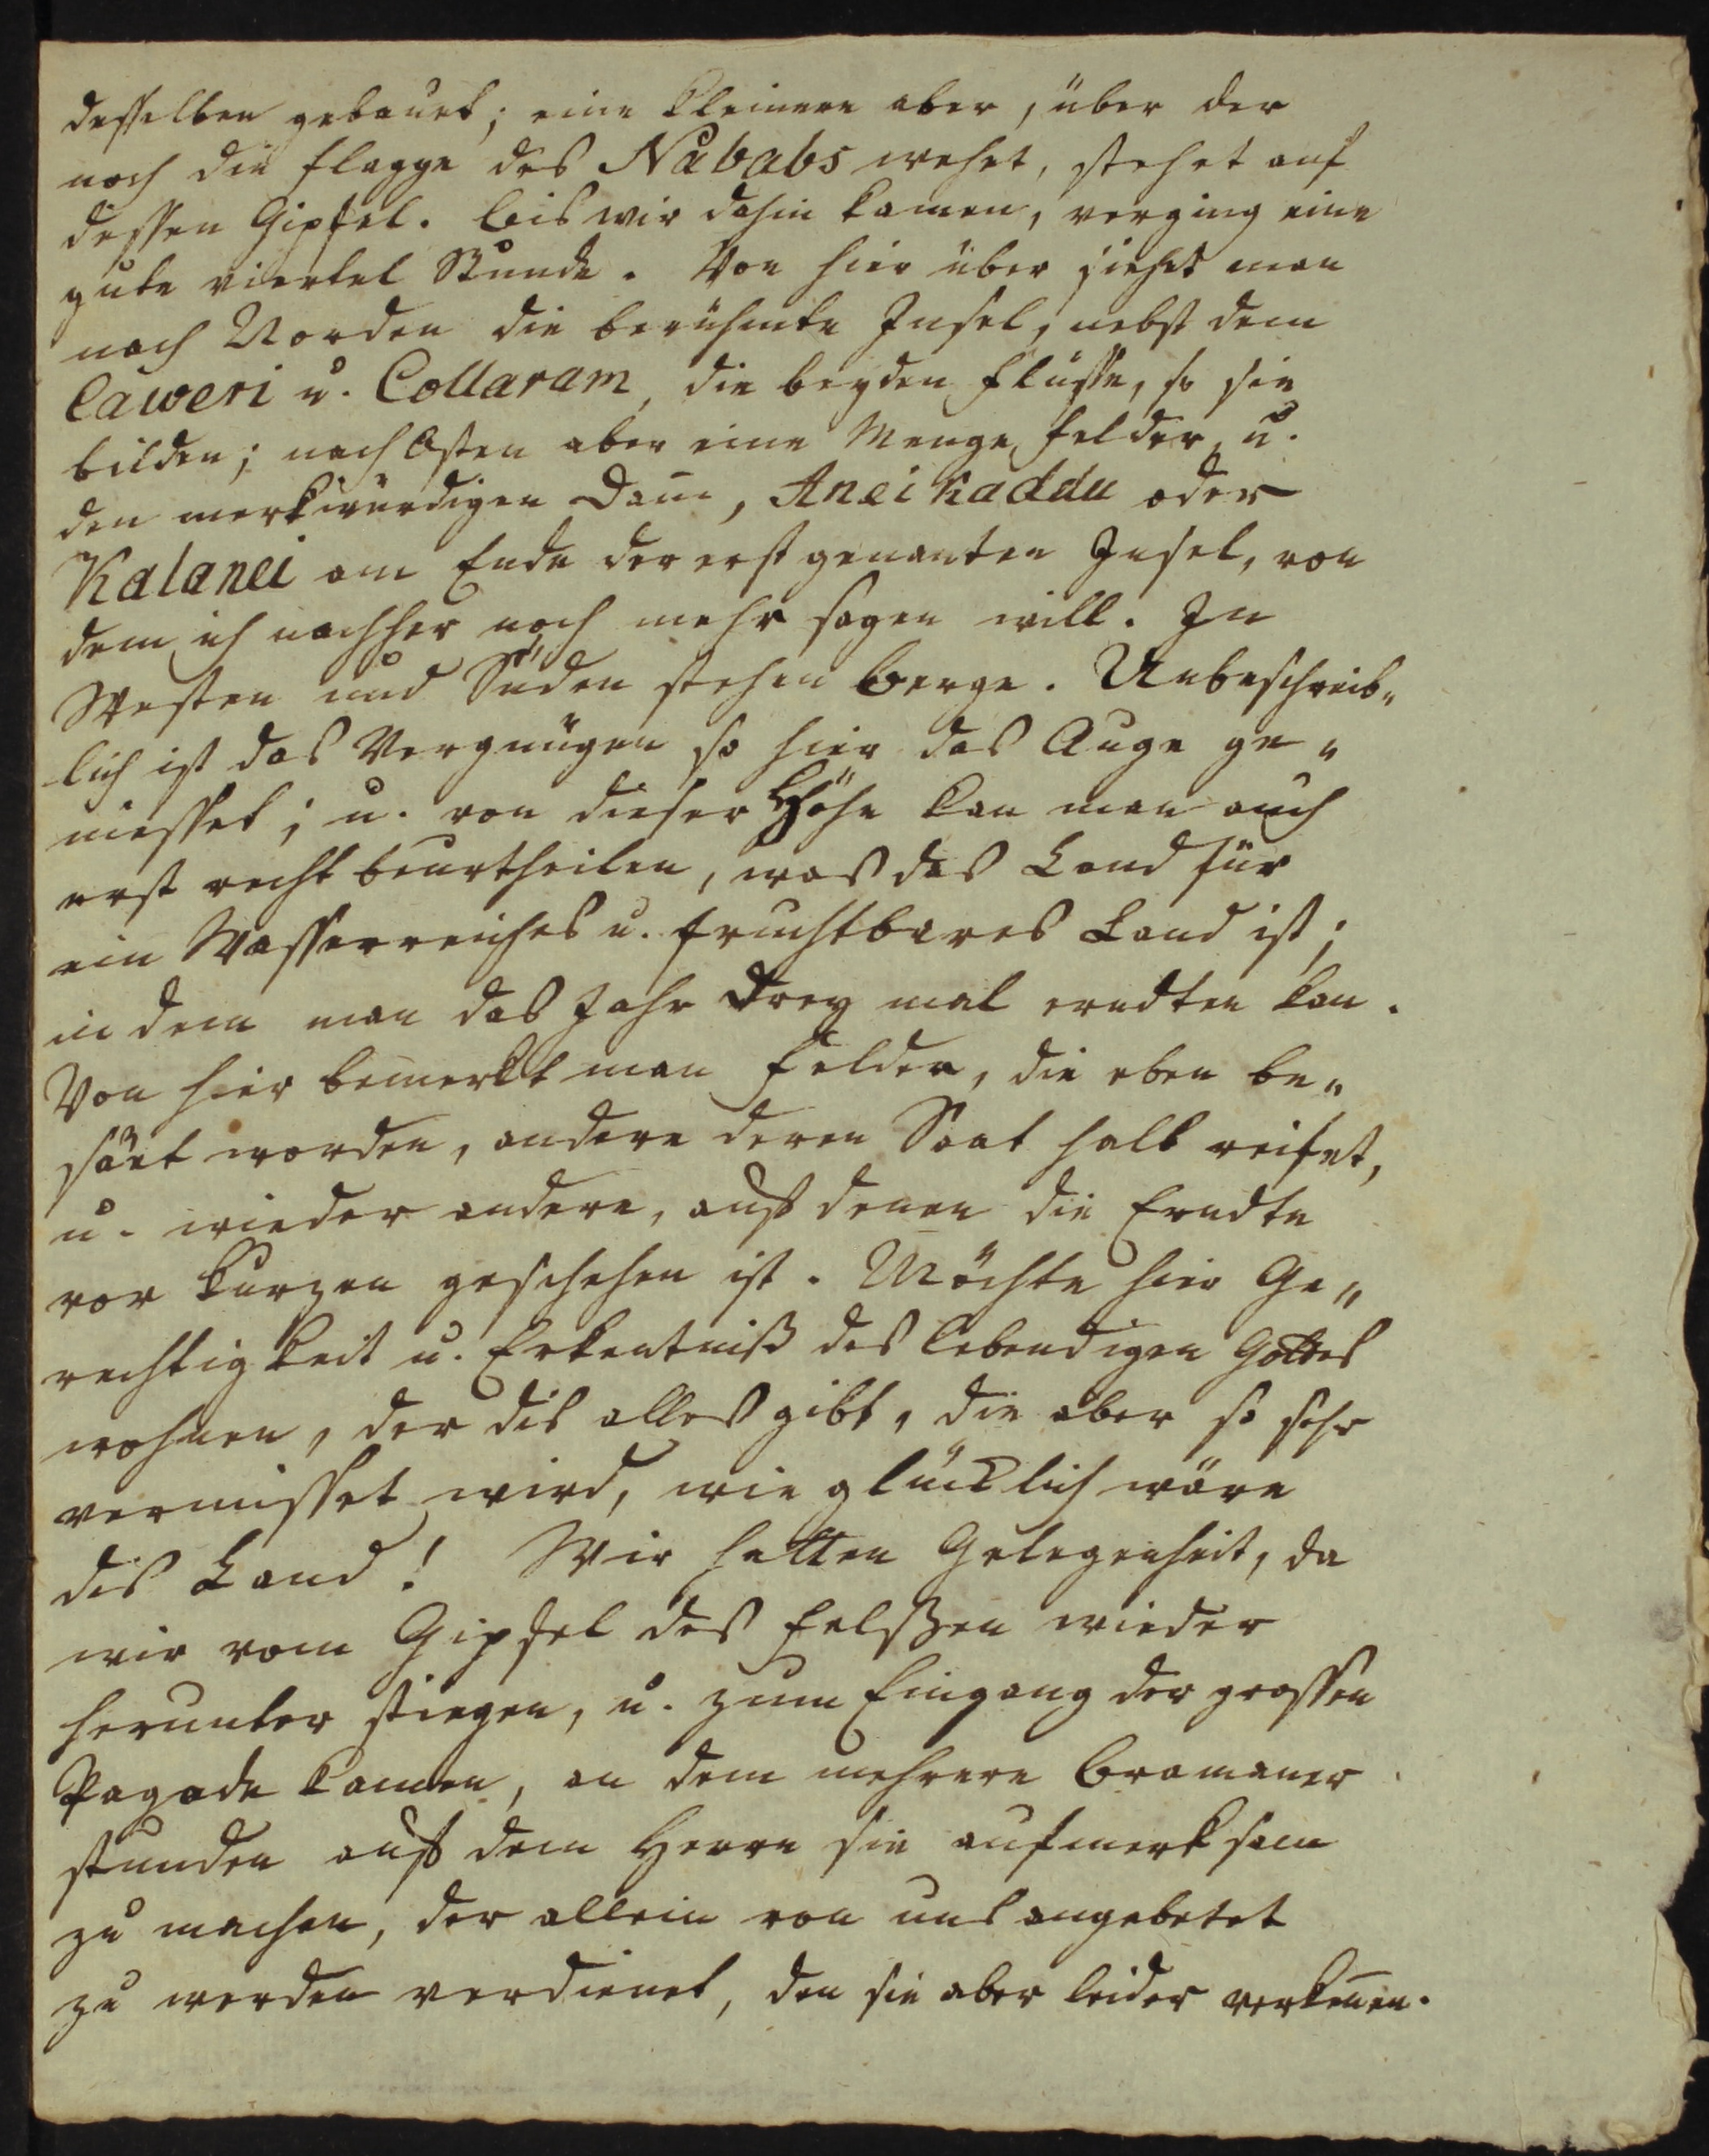 desselben gebauet; eine kleinere aber, über der
noch die Flagge des Nababs wehet, stehet auf
dessen Gipfel. Bis wir dahin kamen, verging eine
gute viertel Stunde. Von hier über siehet man
nach Norden die berühmte Insel, nebst dem
Caweri u. Collaram, die beyden Flüsse, so sie
bilden; nach Osten aber eine Menge Felder, u.
den merkwürdigen Dam̅, Aneikaddu oder
Kalanei am Ende der erst genanten Insel, von
dem ich nachher noch mehr sagen will. In
Westen und Süden stehen Berge. Unbeschreib„
lich ist das Vergnügen so hier das Auge ge„
niesset; u. von dieser Höhe kan man auch
erst recht beurtheilen, was das Land für
ein Wasserreiches u. fruchtbares Land ist;
in dem man das Jahr drey mal erndten kan.
Von hier bemerkt man Felder, die eben be„
säet worden, andere deren Saat halb reifet,
u. wieder andere, auf denen die Erndte
vor kurzen geschehen ist. Möchte hier Ge„
rechtigkeit u. Erkentniß des lebendigen Gottes
wohnen, der dis alles gibt, die aber so sehr
vermisset wird, wie glücklich wäre
dis Land! Wir hatten Gelegenheit, da
wir vom Gipfel des Felßen wieder
herunter stiegen, u. zum Eingang der grossen
Pagode kamen, an dem mehrere Bramaner
stunden auf dem Herrn sie aufmerksam
zu machen, der allein von uns angebetet
zu werden verdienet, den sie aber leider verken̅en.